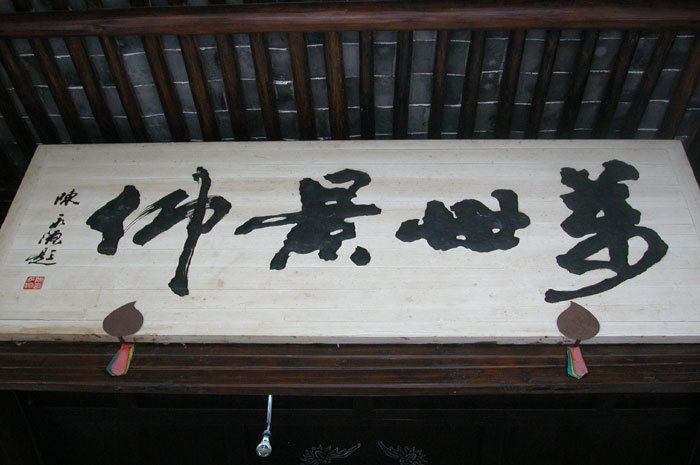 萬世景仰
陳天灋題